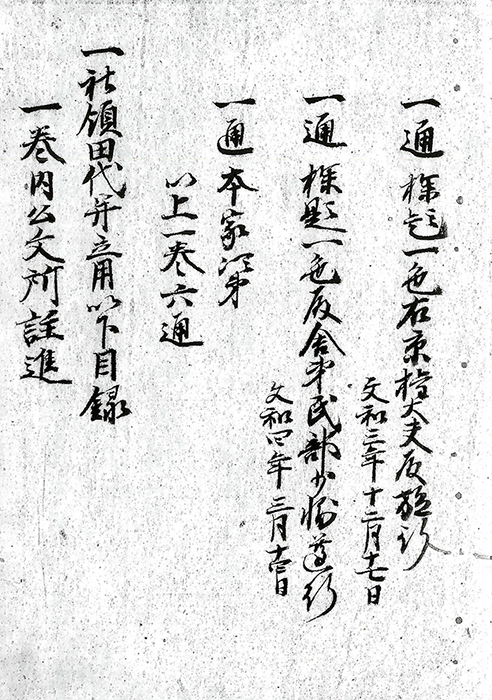 一通 探題一色右京権大夫殿施行
文和三年十二月十七日
一通 探題一色殿舎弟民部少輔遵行
文和四年三月十三日
一通本家次第
以上一巻六通
一社領田代并立用以下目録
一巻内公文所註進